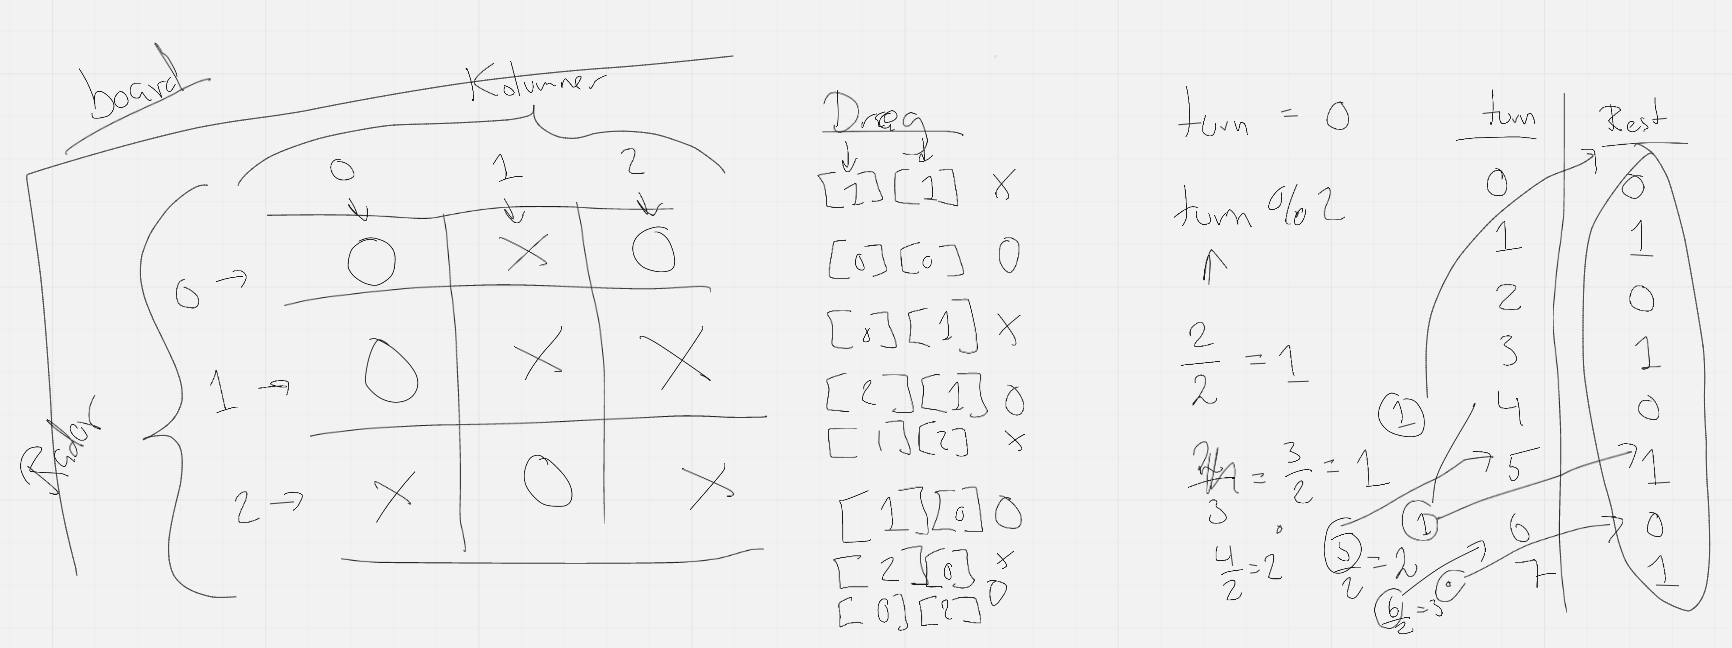 board
Kolumner
0 1 2
0 → O X O
1 → O X X
2 → X O X
Rader
Drag
[1][1] X
[0][0] O
[0][1] X
[2][1] O
[1][2] X
[1][0] O
[2][0] X
[0][2] O
turn = 0
turn % 2
2/2 = 1
3 = 3/2 = 1 1
4/2 = 2
5/2 = 2 1
6/2 = 3 0
1
turn Rest
0 0
1 1
2 0
3 1
4 0
5 1
6 0
7 1